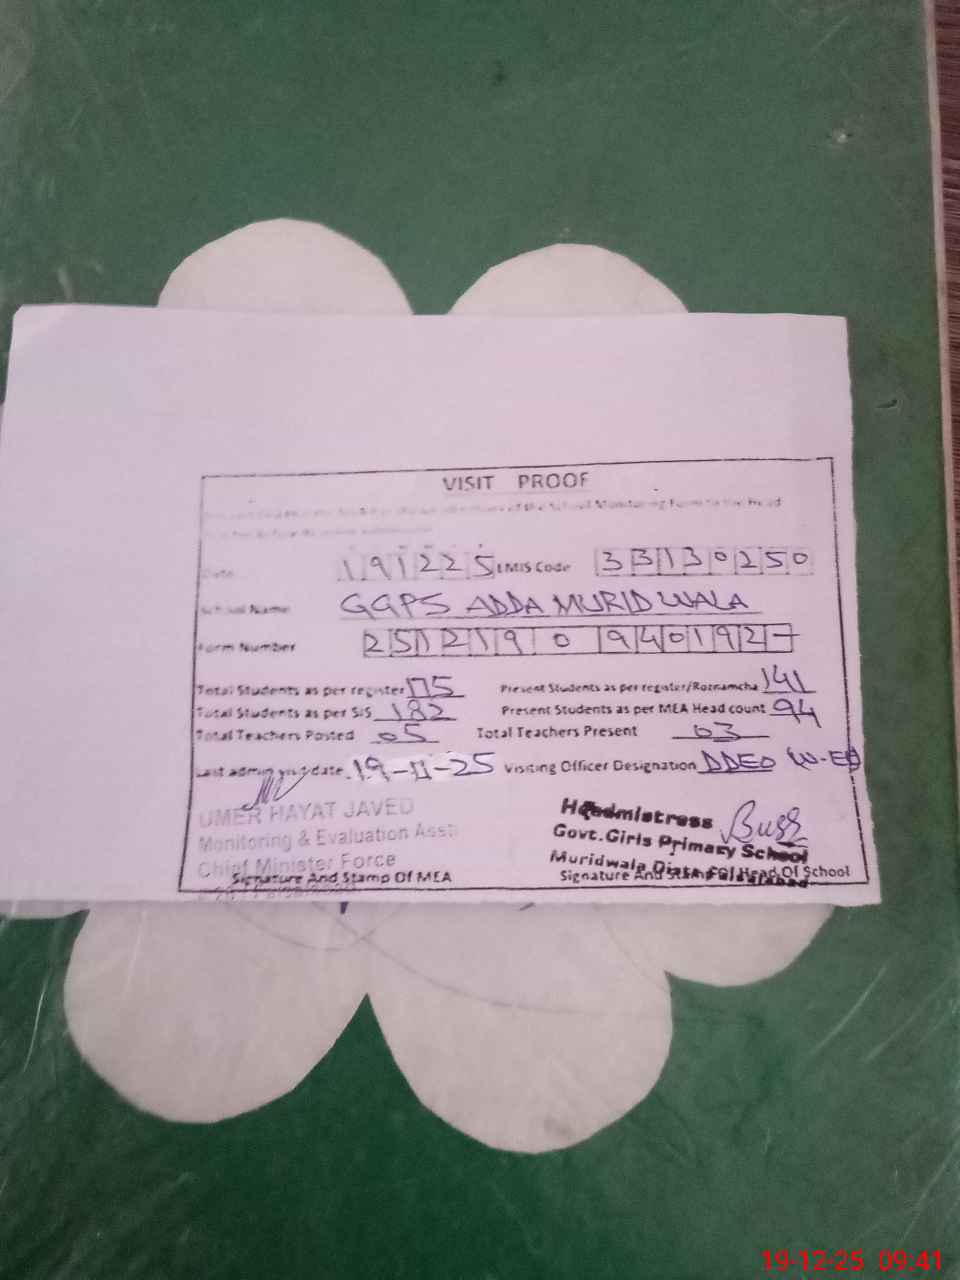 VISIT PROOF
of the School Monitoring Form to the Head
Date 191225 EMIS Code 33130250
School Name GGPS ADDA MURIDWALA
Form Number 251219 0 940192
Total Students as per register 175 Present Students as per register/Roznamcha 141
Total Students as per SIS 182 Present Students as per MEA Head count 94
Total Teachers Posted 05 Total Teachers Present 03
Last admin visit date 19-11-25 Visiting Officer Designation DDEO W-EE
UMER HAYAT JAVED
Monitoring & Evaluation Asstt
Chief Minister Force
Signature And Stamp Of MEA
Headmistress
Govt. Girls Primary School
Muridwala Faisalabad
Signature And Stamp Of Head Of School
19-12-25 09:41